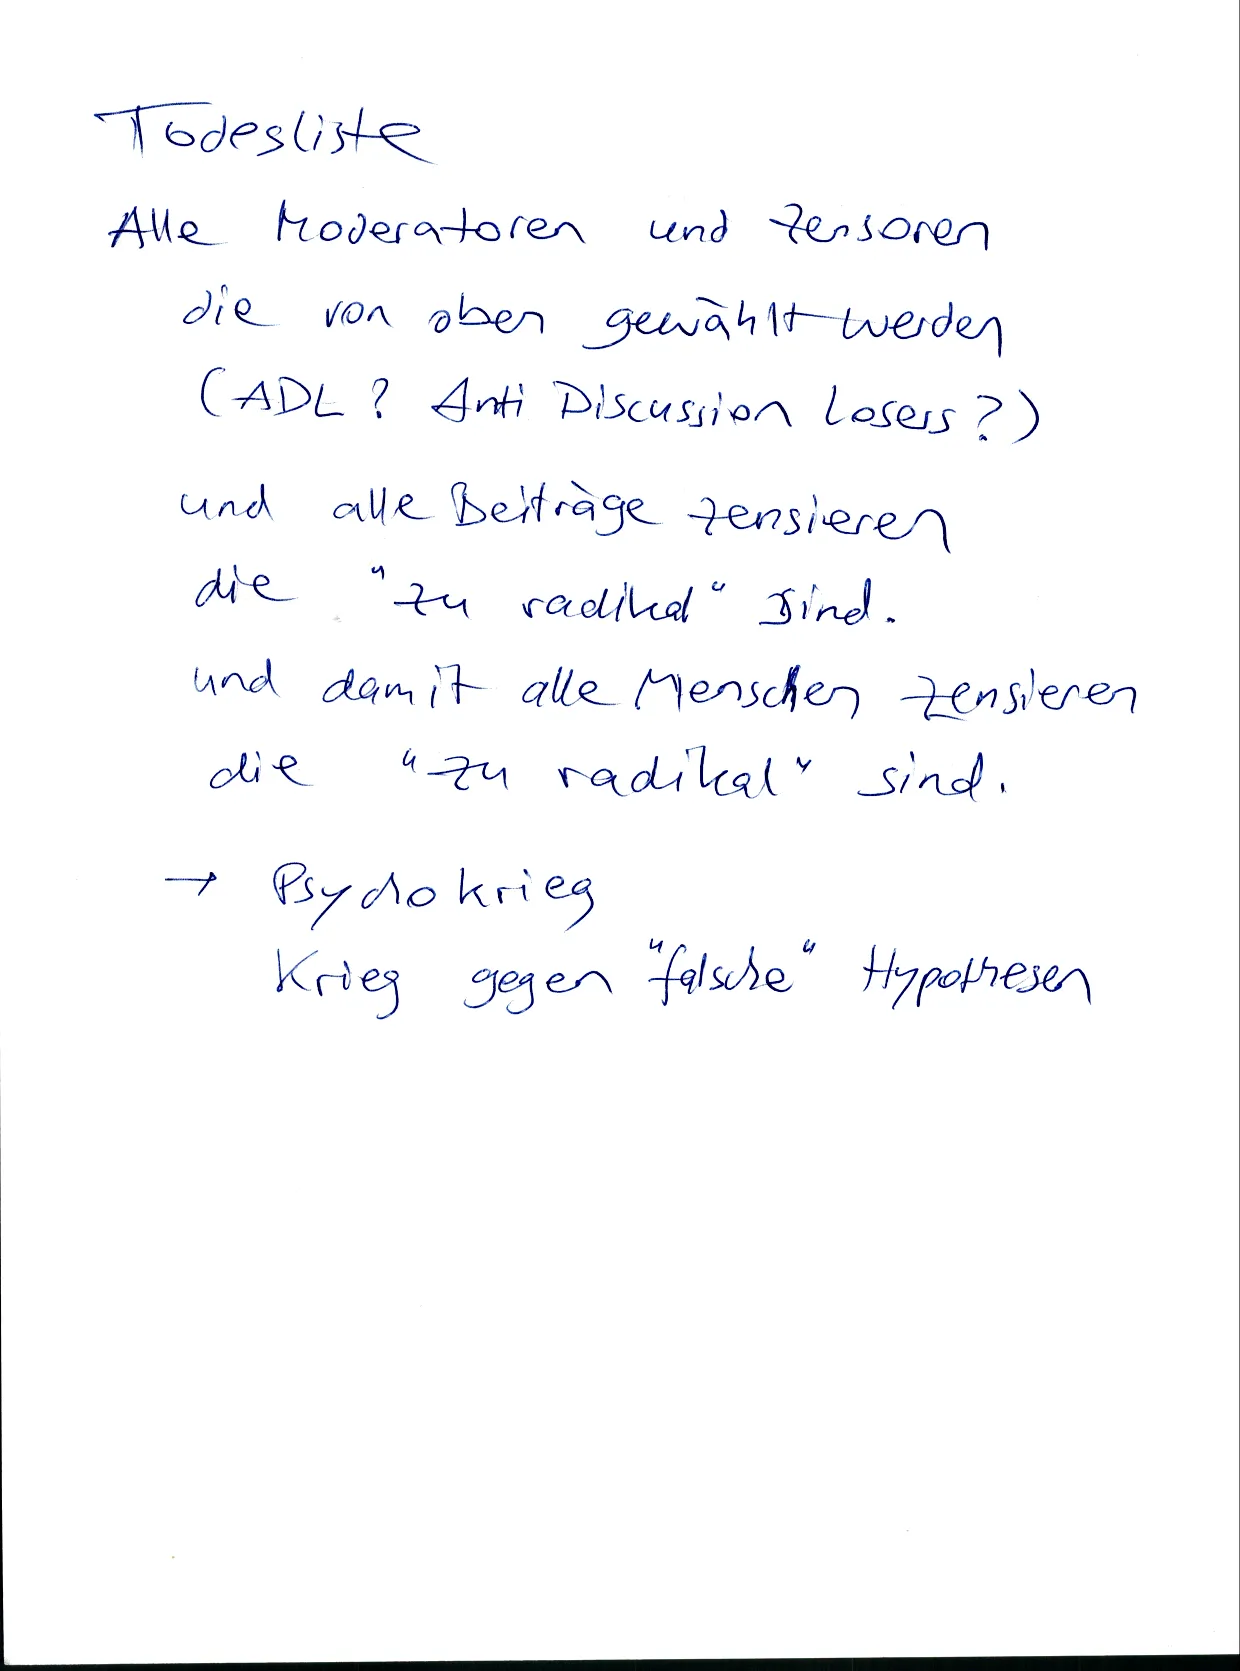 Todesliste
Alle Moderatoren und Zensoren
die von oben gewählt werden
(ADL? Anti Discussion Losers?)
und alle Beiträge zensieren
die "zu radikal" sind.
und damit alle Menschen zensieren
die "zu radikal" sind.
→ Psychokrieg
Krieg gegen "falsche" Hypothesen